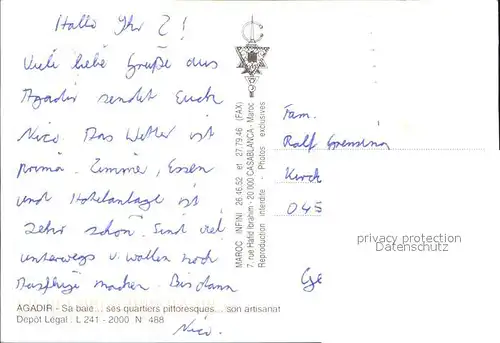 Hallo Ihr 2!
Viele liebe Grüße aus
Agadir sendet Euch
Nico. Das Wetter ist
prima. Zimmer, Essen
und Hotelanlage ist
sehr schön. Sind viel
unterwegs u. wollen noch
Ausflüge machen. Bis dann
Nico.
AGADIR - Sa baie... ses quartiers pittoresques... son artisanat
Dépôt Légal : L 241 - 2000 N° 488
MAROC INFINI 26.46.52 et 27.79.46 (FAX)
7, rue Hafid Ibrahim - 20 000 CASABLANCA - Maroc
Reproduction interdite - Photos exclusives
Fam.
Ralf
Kirch
045
Ge
privacy protection
watermark